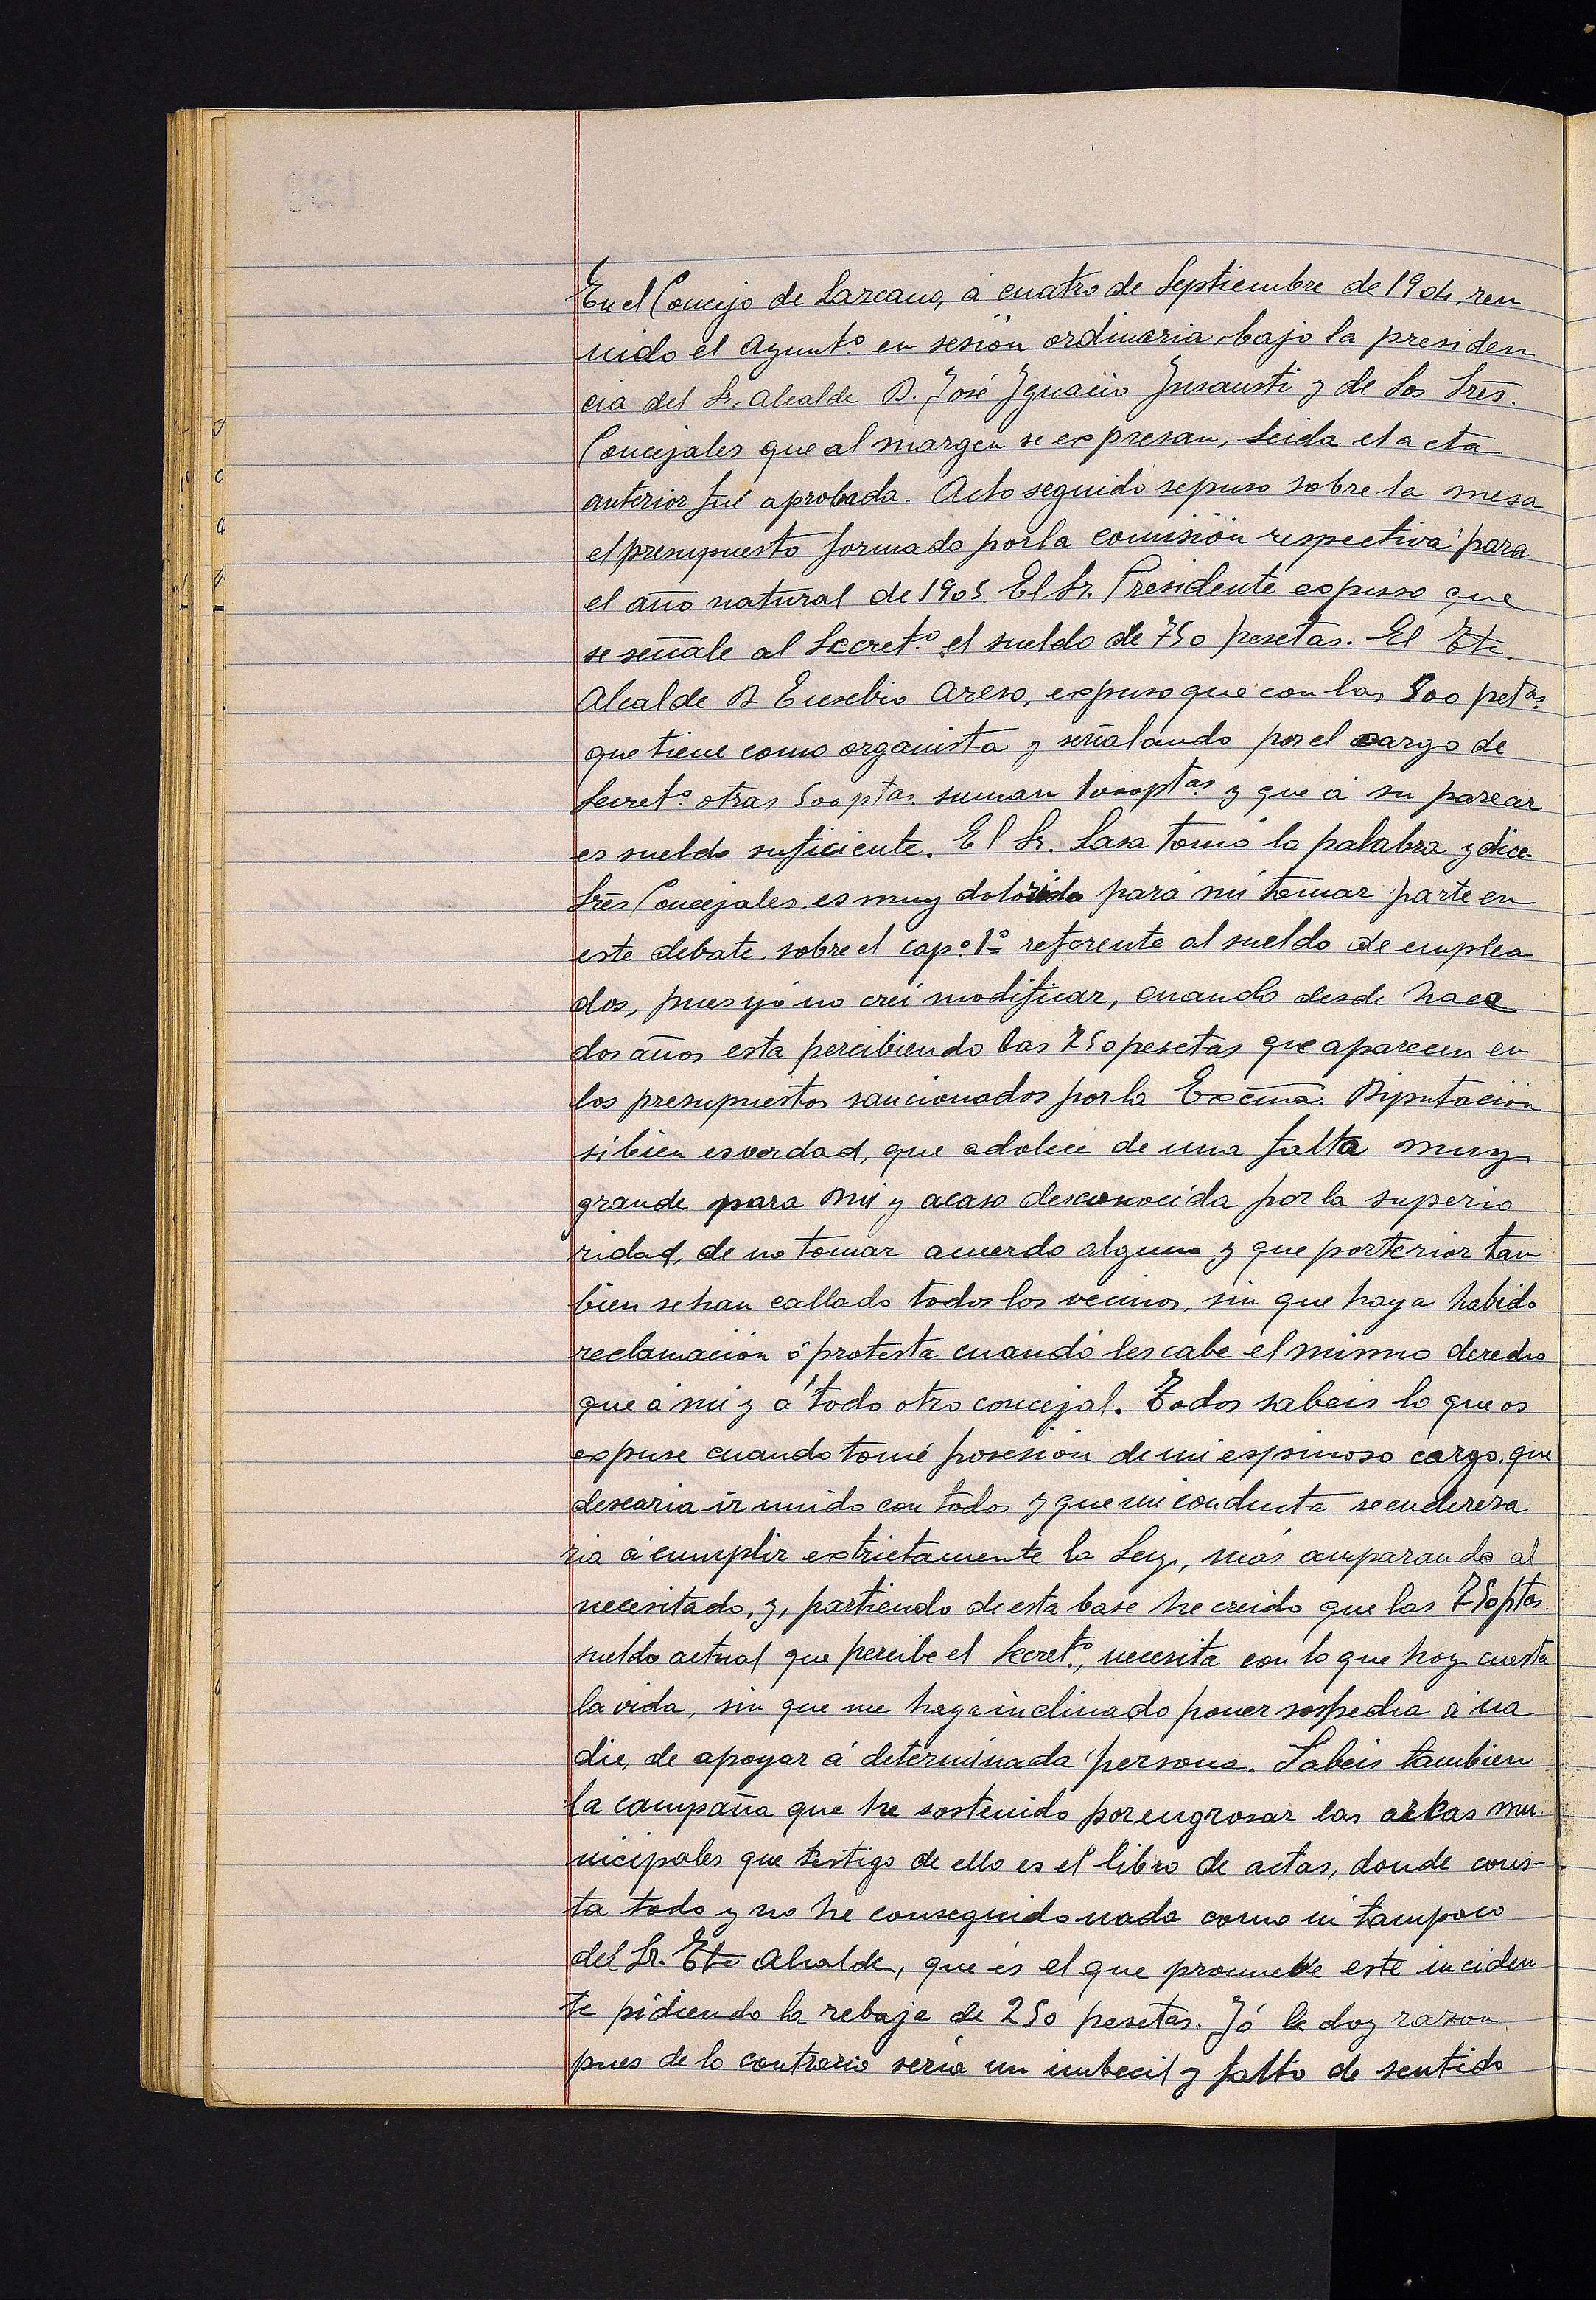 En el Concejo de Lazcano, á cuatro de Septiembre de 1904. reu
nido el Ayunt.º en sesión ordinaria bajo la presiden
cia del Sr. Alcalde D. José Ygnacio Ynsausti y de los Sres.
Concejales que al margen se expresan, leida el acta
anterior fué aprobada. Acto seguido se puso sobre la mesa
el presupuesto formado por la comisión respectiva para
el año natural de 1905. El Sr. Presidente expuso que
se señale al Secret.º el sueldo de 750 pesetas. El Tte
Alcalde D Eusebio Areso, expuso que con las 500 petas.
que tiene como organista y señalando por el cargo de
Secret.º otras 500 ptas. suman 1000 ptas y que á su parear
es sueldo suficiente. El Sr. Lasa tomó la palabra y dice.
Sres Concejales, es muy dolorido para mi tomar parte en
este debate. sobre el cap.º 1º referente al sueldo de emplea
dos, pues yó no crei modificar, cuando desde hace
dos años esta percibiendo las 750 pesetas que aparecen en
los presupuestos sancionados por la Excma. Diputación
si bien es verdad, que adolece de una falta muy
grande para mi y acaso desconocida por la superio
ridad, de no tomar acuerdo alguno y que porterior tam
bien se han callado todos los vecinos, sin que haya habido
reclamación ó protesta cuando les cabe el mismo derecho
que á mi y á todo otro concejal. Todos sabeis lo que os
expuse cuando tomé posesión de mi espinoso cargo. que
desearia ir unido con todos y que mi conducta se endereza
ria á cumplir extrictamente la Ley, más amparando al
necesitado, y, partiendo de esta base he creido que las 750 ptas.
sueldo actual que percibe el Secret.º, necesita con lo que hoy cuesta
la vida, sin que me haya inclinado poner sospecha á na
die, de apoyar á determinada persona. Sabeis tambien
la campaña que he sostenido por engrosar las arkas mu
nicipales que testigo de ello es el libro de actas, donde cons-
ta todo y no he conseguido nada como ni tampoco
del Sr. Tte Alcalde, que es el que promueve este inciden
te pidiendo la rebaja de 250 pesetas. Yó le doy razon
pues de lo contrario seria un imbecil y falto de sentido